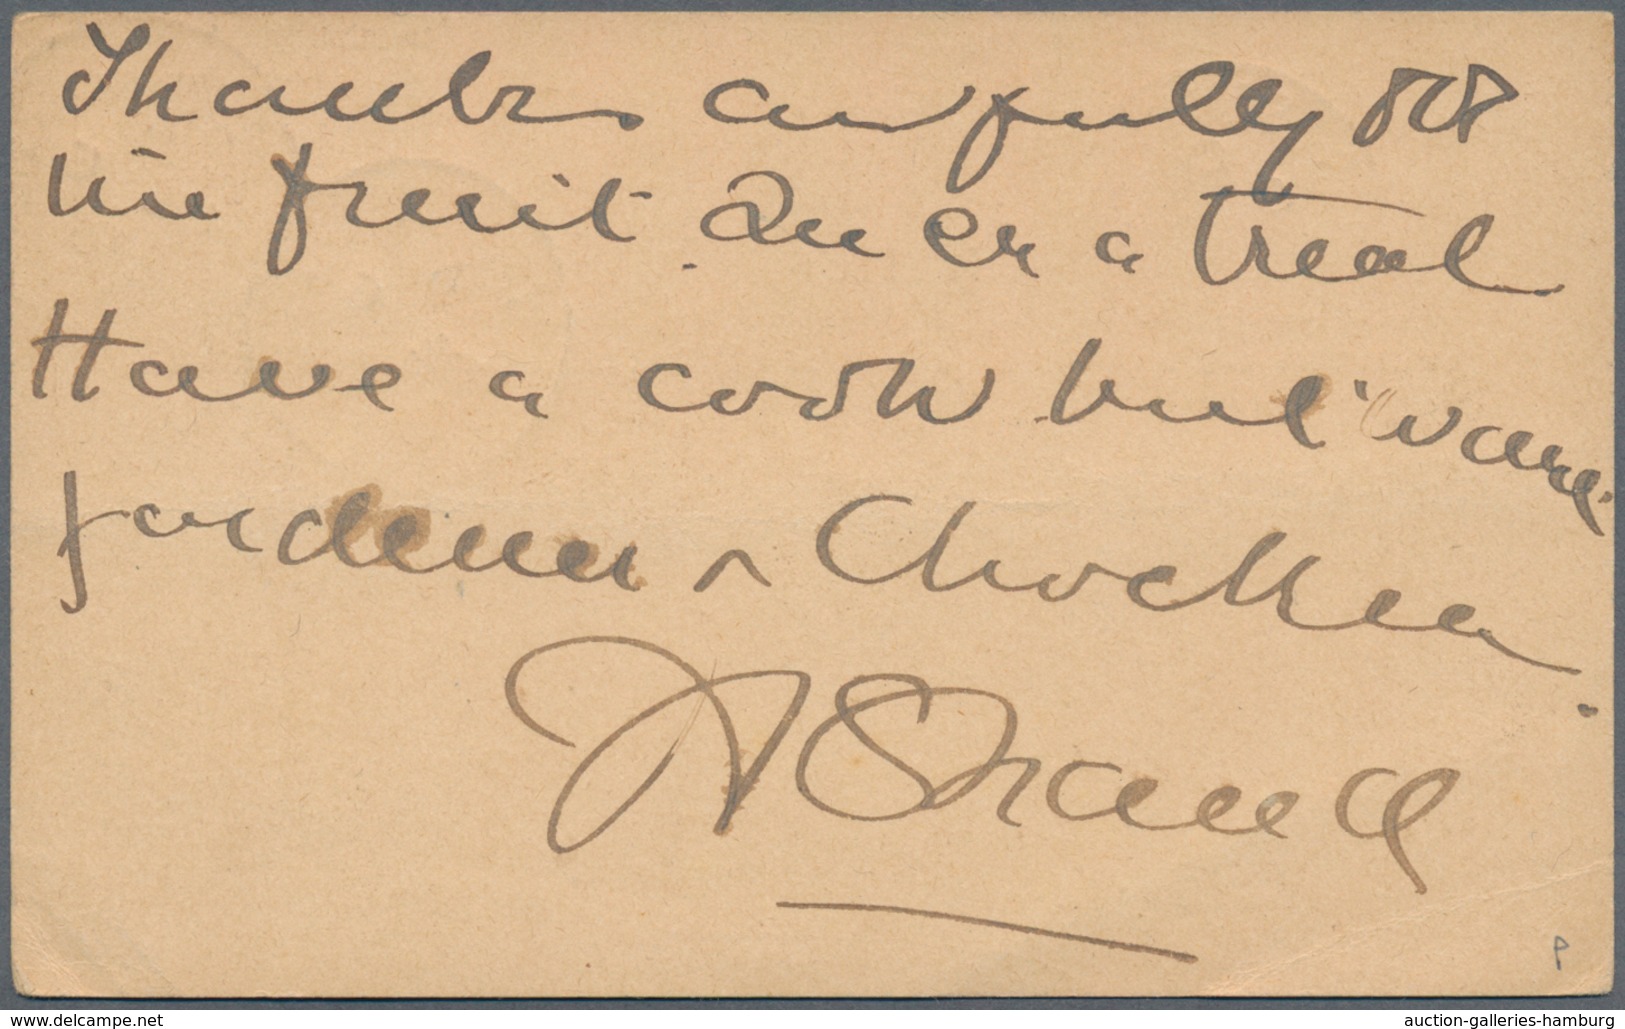 Thanks awfully for
the fruit. It is a treat
Have a cook but want
gardener &
www.delcampe.net
auction-galleries-hamburg